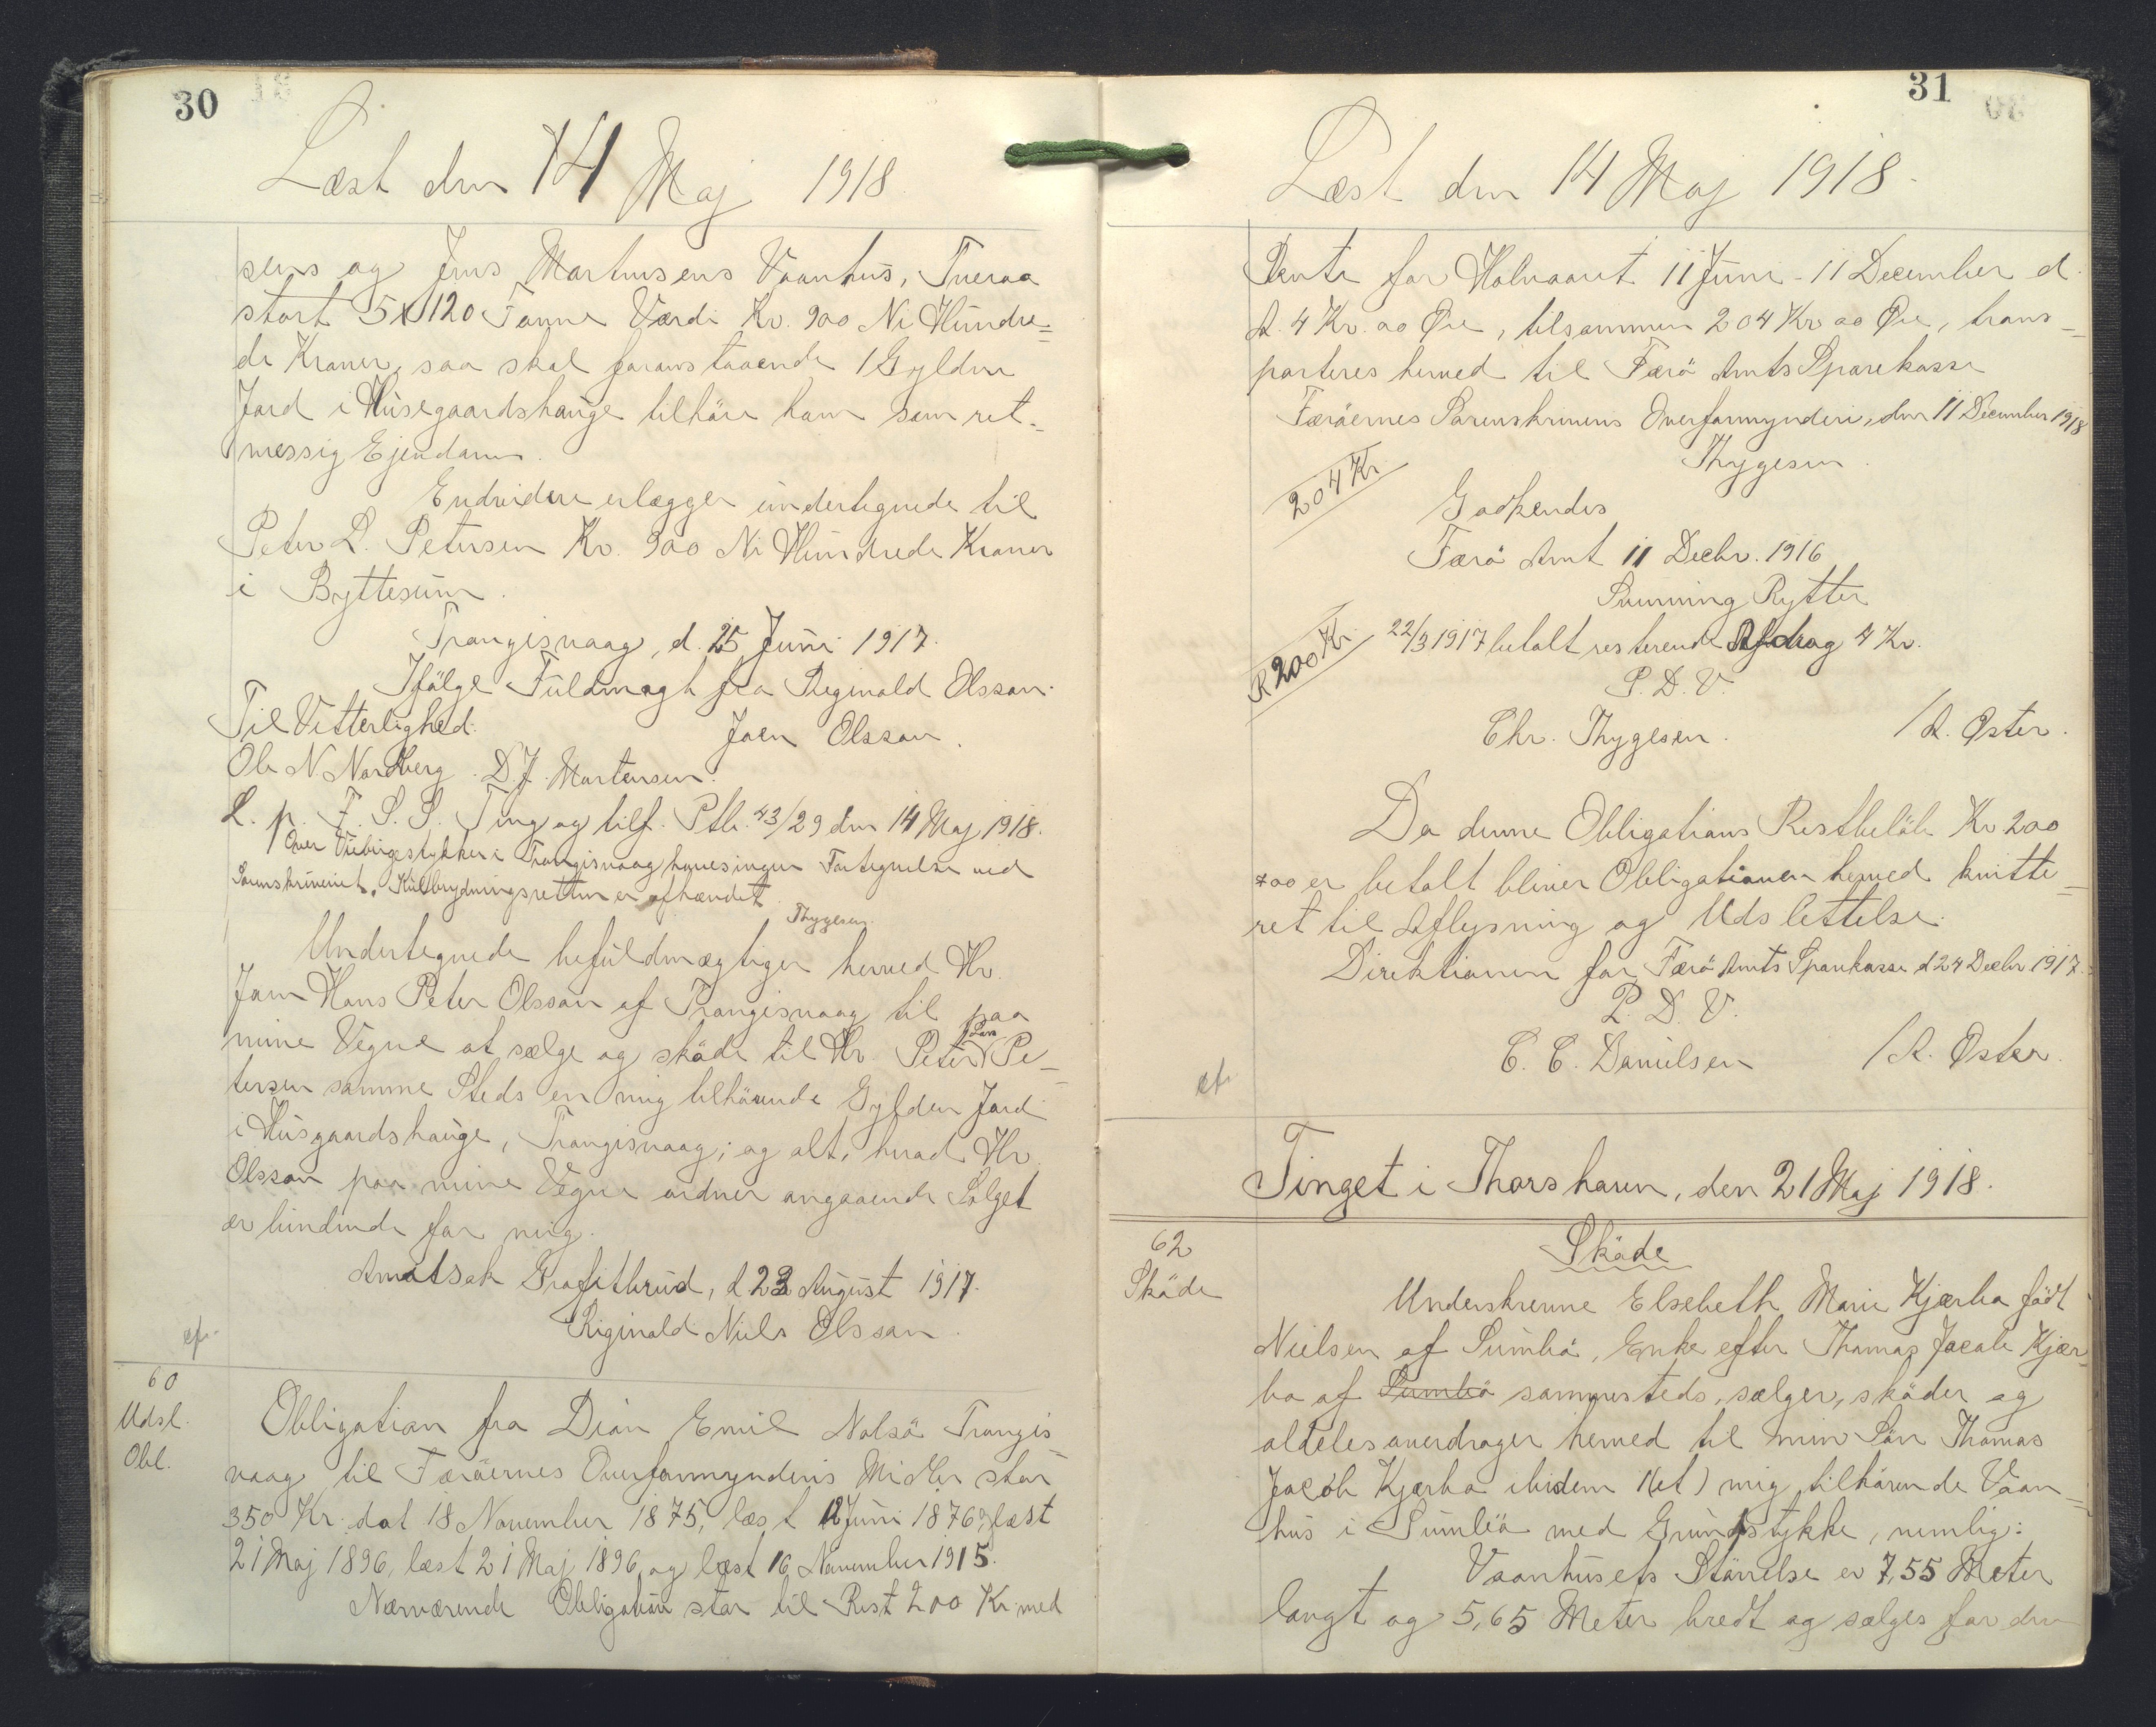 30
Læst den 14 Maj 1918
sens og Jens Martinsens Vaanhus, Tveraa
stort 5x120 Favne Værdi Kr. 900 Ni Hundre=
de Kroner, saa skal foranstaaende 1 Gylden
Jord i Husegaardshauge tilhöre ham som ret-
messig Ejendom.
Endvidere erlægger undertegnede til
Peter L. Petersen Kr. 900 Ni Hundrede Kroner
i Byttesum.
Trangisvaag, d. 25 Juni 1917.
Ifölge Fuldmagt fra Reginald Olsson.
Til Vitterlighed. Joen Olsson.
Ole N Nordberg. D. J. Martensen.
L. p. F. S. S. Ting og tilf. Ptb. 43/29 den 14 Maj 1918.
Over Træbingestykker i Trangisvaag henvises Fortegnelse ved
Sorenskriveriet. Kulbrydningsretten er afhændet.
Thygesen.
Undertegnede befuldmægtiger herved Hr.
Joen Hans Peter Olsson af Trangisvaag til paa
mine Vegne at sælge og sköde til Hr. Peter Lars Pe-
tersen samme Steds en mig tilhörende Gylden Jord
i Husgaardshauge, Trangisvaag; og alt, hvad Hr.
Olsson paa mine Vegne ordner angaaende Salget
er bindende for mig.
Amatsok Grafitbrud, d 23 August 1917.
Riginald Niels Olsson.
cfr.
60
Udsl.
Obl.
Obligation fra Dion Emil Nolsö Trangis
vaag til Færöernes Overformynderis Midler stor
350 Kr. dat 18 November 1875, læst 12 Juni 1876, læst
21 Maj 1896, læst 21 Maj 1896, og læst 16 November 1915.
Nærværende Obligation stor til Rest 200 Kr med
31
Læst den 14 Maj 1918.
Rente for Halvaaret 11 Juni - 11 December d.
A. 4 Kr. oo Øre, tilsammen 204 Kr oo Øre, trans-
porteres herved til Færö Amts Sparekasse
Færöernes Sorenskrivers Overformynderi, den 11 December 1918
Thygesen.
204 Kr
Godkendes
Færö Amt 11 Decbr. 1916
Svenning Rytter
R 200 Kr. 22/3 1917 betalt resterende Afdrag 4 Kr.
P. D. V.
Chr. Thygesen. / A. Oster.
Da denne Obligations Restbelöb Kr 200
200 er betalt bliver Obligationen herved kvitte-
ret til Aflysning og Udslettelse.
Direktionen for Færö Amts Sparekasse d 24 Decbr 1917.
P. D. V.
C. C. Danielsen / A. Oster.
cfr
Tinget i Thorshavn, den 21 Maj 1918.
62
Sköde
Sköde
Underskrevne Elsebeth Marie Kjærbo födt
Nielsen af Sumbö, Enke efter Thomas Jacob Kjær
bo af Sumbö sammesteds, sælger, sköder og
aldeles overdrager herved til min Sön Thomas
Jacob Kjærbo ibidem 1(et) mig tilhörende Vaan-
hus i Sumbö med Grundstykke, nemlig:
Vaanhusets Störrelse er 7,55 Meter
langt og 5,65 Meter bredt og sælges for den